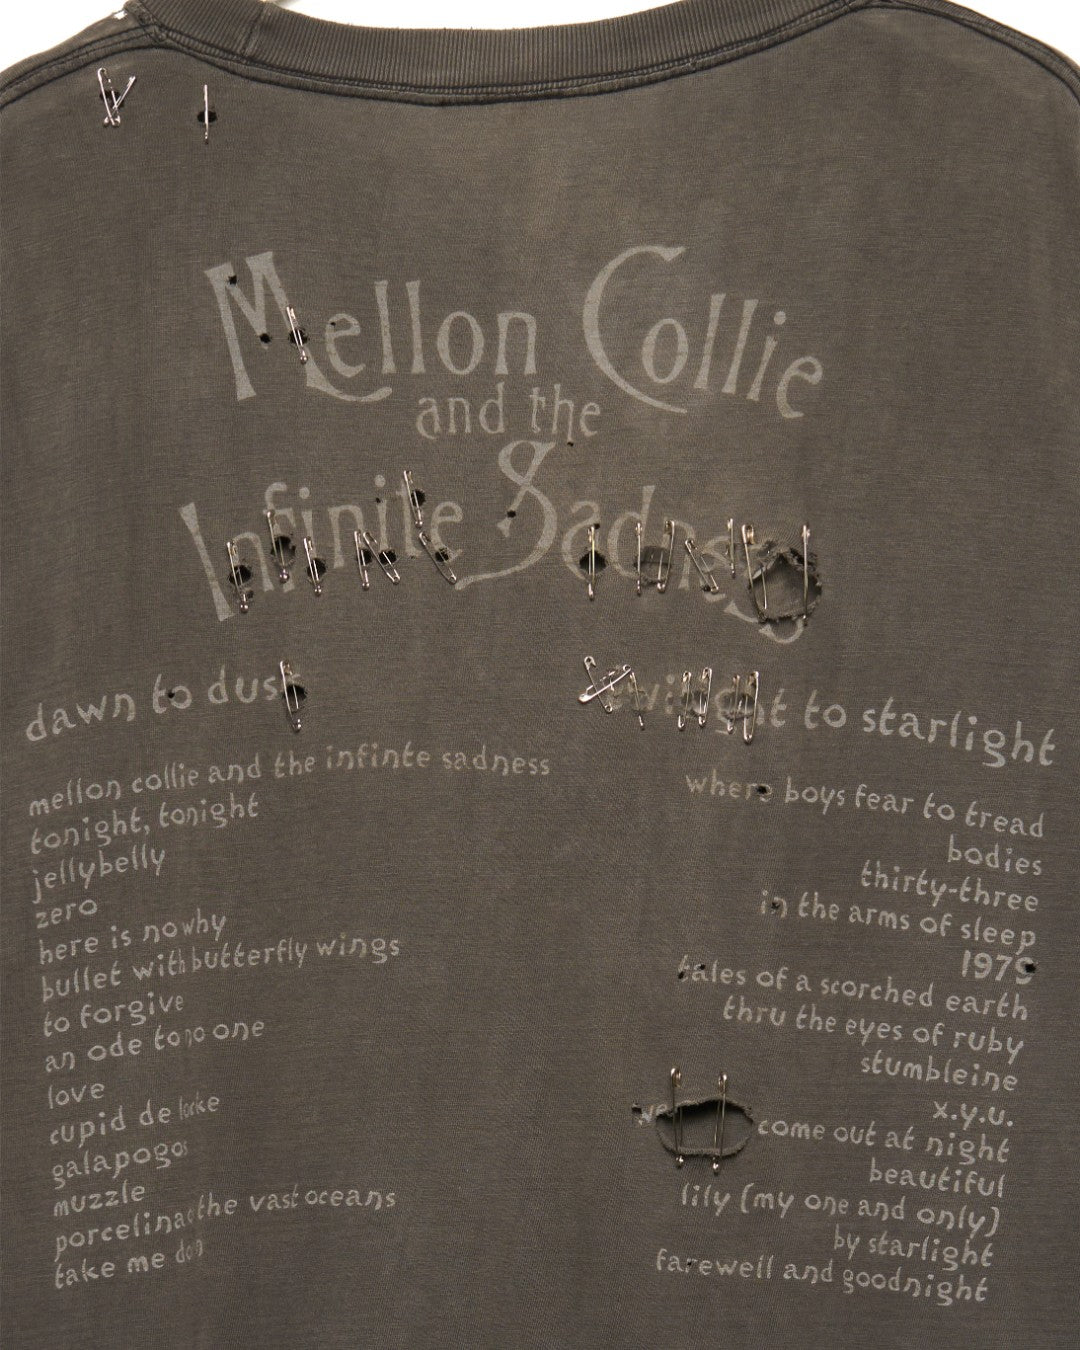 Mellon Collie
and the
Infinite Sadness
dawn to dust
mellon collie and the infinte sadness
tonight, tonight
jellybelly
zero
here is nowhy
bullet with butterfly wings
to forgive
an ode to no one
love
cupid de locke
galapogos
muzzle
porcelina of the vast oceans
take me down
twilight to starlight
where boys fear to tread
bodies
thirty-three
in the arms of sleep
1979
tales of a scorched earth
thru the eyes of ruby
stumbleine
x.y.u.
we come out at night
beautiful
lily (my one and only)
by starlight
farewell and goodnight